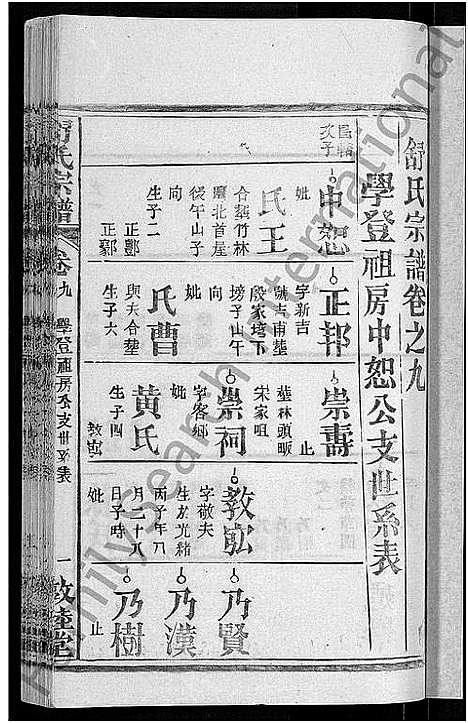 舒氏宗譜卷之九
學登祖房中恕公支世系表
次子
中恕
妣
王氏
合塟竹林
壠北首屋
後午山子
向
生子二
正鄷
正鄴
正邦
字新吉
號吉甫塟
殷家塆下
塝子山午
向
妣
曹氏
與夫合塟
生子六
崇壽
止
塟林頭畈
宋家咀
崇祠
字客鄉
妣
黃氏
生子四
教宖
教宖
字敬夫
生於光緒
丙子年八
月二十八
日子時
妣
乃賢
乃漢
乃樹
止
舒氏宗譜
卷九
學登祖房公支世系表
一
敦睦堂
FamilySearch International